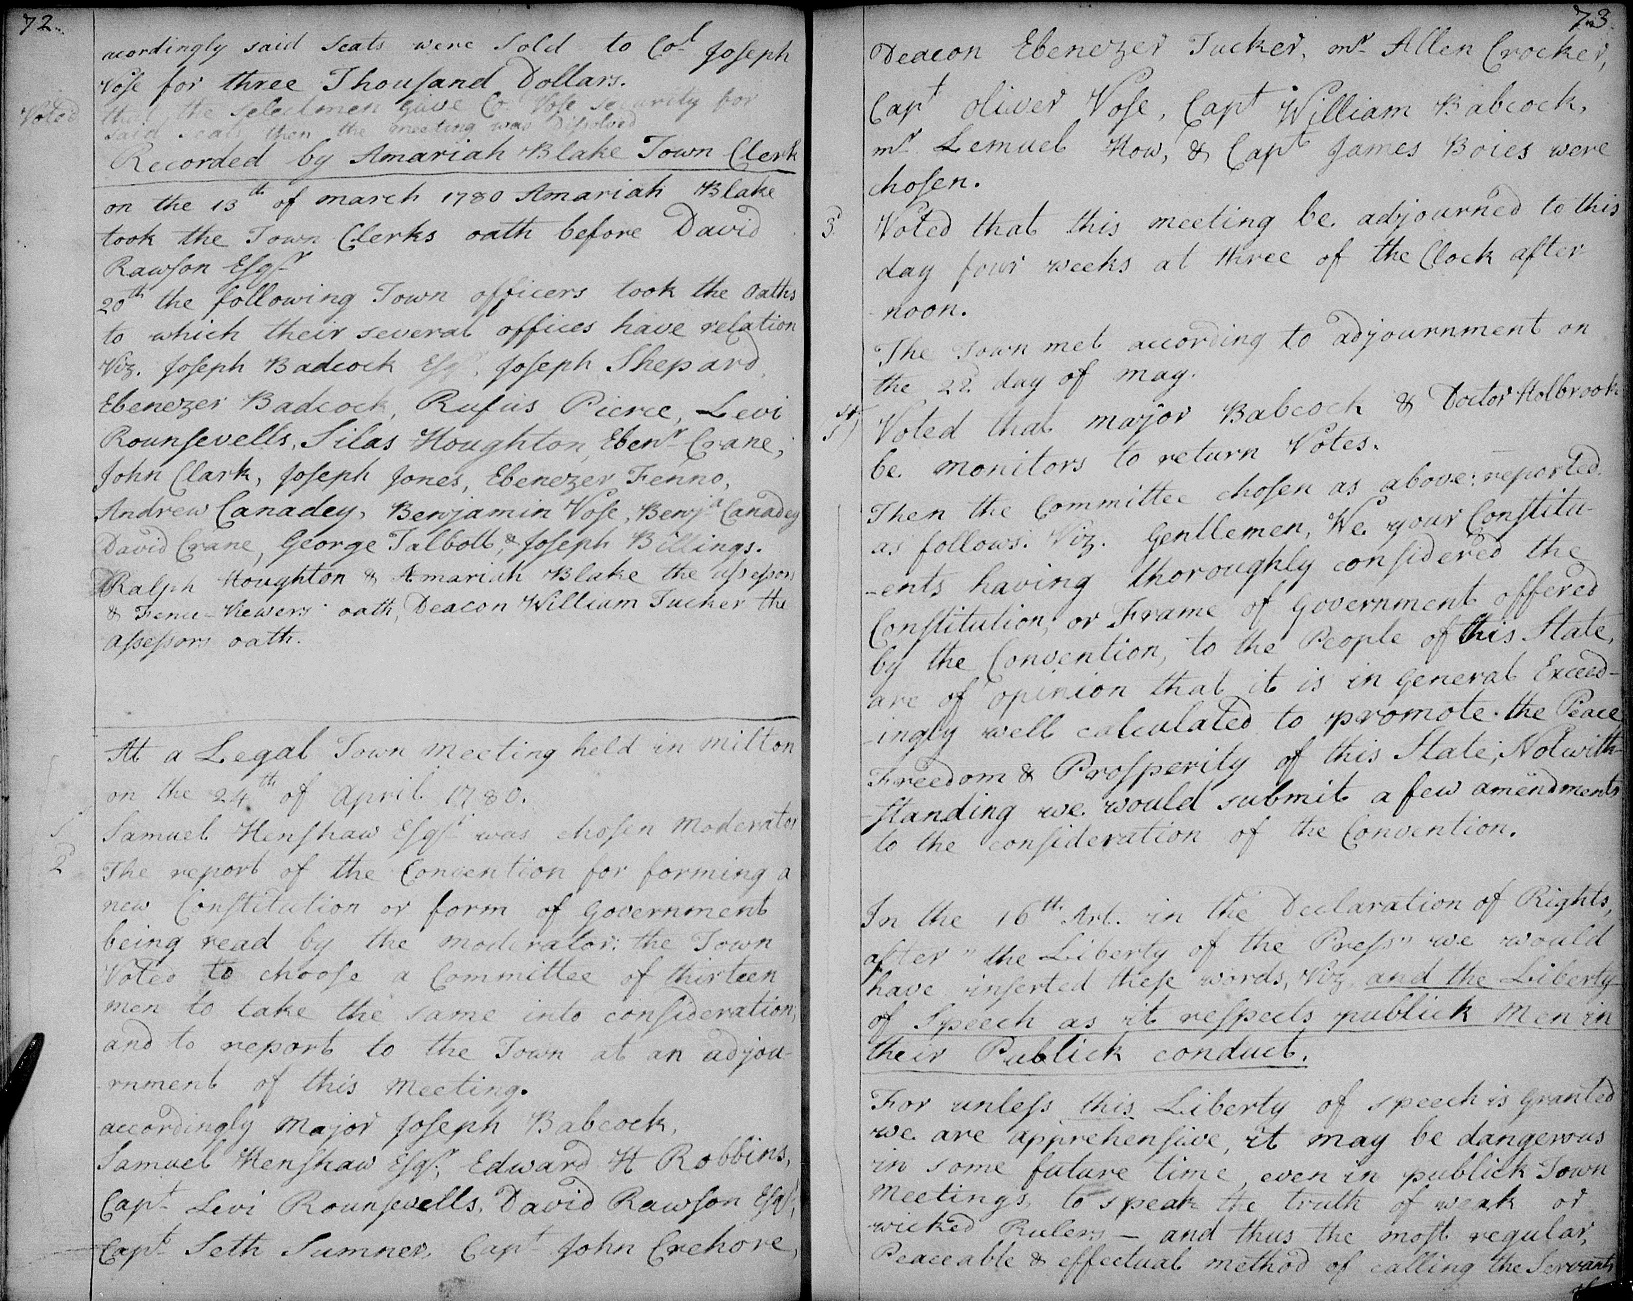 72.
acordingly said Seats were Sold to Col Joseph
Vose for three Thousand Dollars.
Voted that the selectmen gave Col Vose security for
said seats, then the meeting was Dissolved
Recorded by Amariah Blake Town Clerk
on the 13th of march 1780 Amariah Blake
took the Town Clerks oath before David
Rawson Esqr
20th the following Town officers took the oaths
to which their several offices have relation
Viz. Joseph Badcock Esqr, Joseph Shepard,
Ebenezer Badcock, Rufus Pierce, Levi
Rounsevells, Silas Houghton, Ebenr Crane,
John Clark, Joseph Jones, Ebenezer Fenno,
Andrew Canadey, Benjamin Vose, Benja Canadey
David Crane, George Talbott, & Joseph Billings.
Ralph Houghton & Amariah Blake the assessors
& Fence-Viewers oath, Deacon William Tucker the
assessors oath.
At a Legal Town meeting held in milton
on the 24th of April 1780.
1 Samuel Henshaw Esqr was chosen moderator
2 The report of the Convention for forming a
new Constitution or form of Government
being read by the moderator; the Town
Voted to choose a Committee of thirteen
men to take the same into consideration,
and to report to the Town at an adjou-
-rnment of this Meeting.
accordingly Major Joseph Babcock,
Samuel Henshaw Esqr, Edward H Robbins,
Capt Levi Rounsevells, David Rawson Esqr,
Capt Seth Sumner, Capt John Crehore,
73.
Deacon Ebenezer Tucker, mr Allen Crocker,
Capt Oliver Vose, Capt William Babcock,
mr Lemuel How, & Capt James Boies were
chosen.
3 Voted that this meeting be adjourned to this
day four weeks at three of the Clock after-
-noon.
The Town met according to adjournment on
the 22d day of may.
Voted that major Babcock & Doctor Holbrook
be monitors to return Votes.
Then the Committee chosen as above; reported
as follows. Viz. Gentlemen, We your Constitu-
-ents having thoroughly considered the
Constitution, or Frame of Government offered
by the Convention, to the People of this State,
are of opinion that it is in general Exceed-
-ingly well calculated to promote the Peace
Freedom & Prosperity of this State; Notwith-
-standing we would submit a few amendments
to the consideration of the Convention.
In the 16th Art. in the Declaration of Rights,
after "the Liberty of the Press" we would
have inserted these words, Viz, and the Liberty
of Speech as it respects publick Men in
their Publick conduct.
For unless this Liberty of speech is granted
we are apprehensive, it may be dangerous
in some future time, even in publick Town
Meetings, to speak the truth of weak or
wicked Rulers – and thus the most regular,
Peaceable & effectual method of calling the Servants